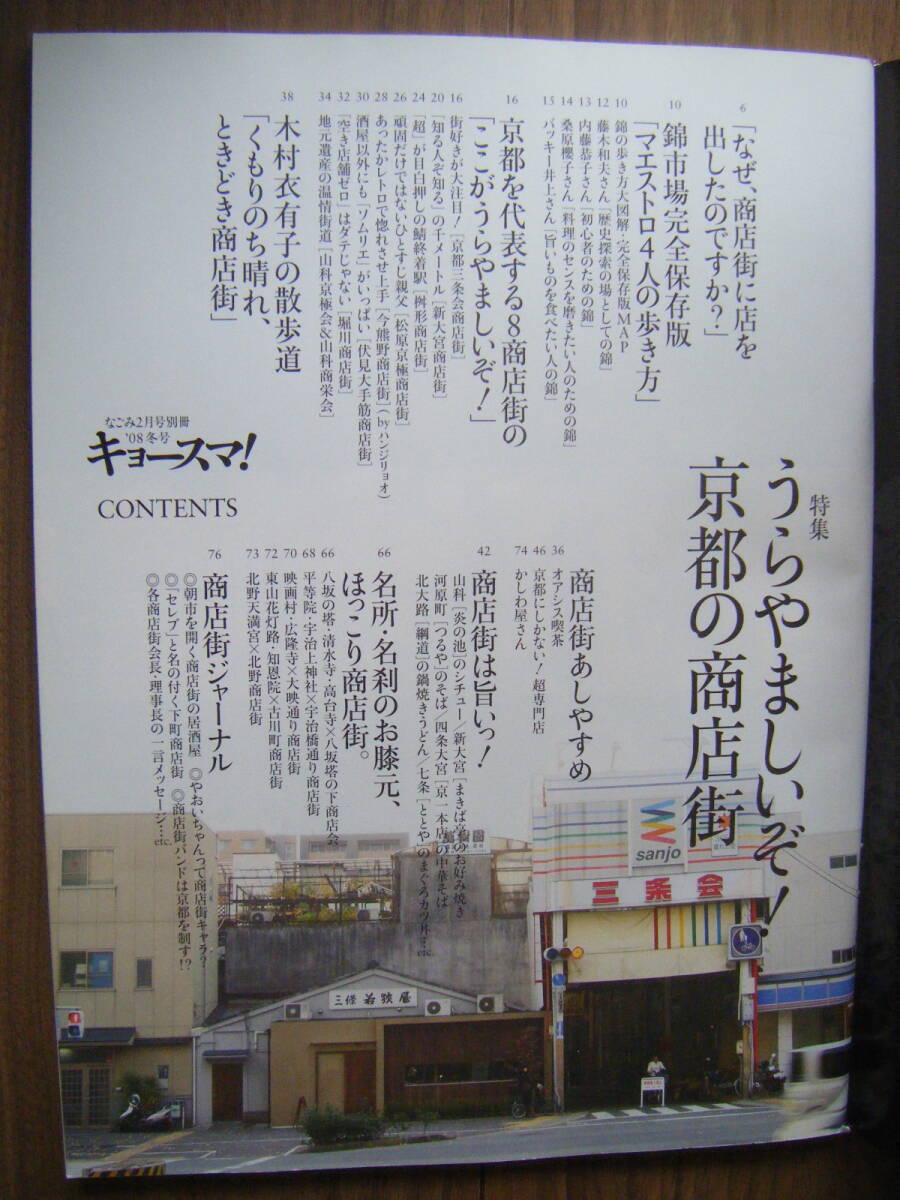 特集
うらやましいぞ!
京都の商店街
6
「なぜ、商店街に店を
出したのですか?」
10
錦市場完全保存版
「マエストロ4人の歩き方」
10 錦の歩き方大図解・完全保存版MAP
12 藤木和夫さん「歴史探索の場としての錦」
13 内藤恭子さん「初心者のための錦」
14 桑原櫻子さん「料理のセンスを磨きたい人のための錦」
15 バッキー井上さん「旨いものを食べたい人の錦」
16
京都を代表する8商店街の
「ここがうらやましいぞ!」
16 街好きが大注目![京都三条会商店街]
20 「知る人ぞ知る」の千メートル[新大宮商店街]
24 「超」が目白押しの鯖終着駅[桝形商店街]
26 頑固だけではないひとすじ親父[松原京極商店街]
28 あったかレトロで惚れさせ上手[今熊野商店街](byハンジリョオ)
30 酒屋以外にも「ソムリエ」がいっぱい[伏見大手筋商店街]
32 「空き店舗ゼロ」はダテじゃない[堀川商店街]
34 地元遺産の温情街道[山科京極会&山科商栄会]
38
木村衣有子の散歩道
「くもりのち晴れ、
ときどき商店街」
なごみ2月号別冊
'08冬号
キョースマ!
CONTENTS
商店街あしやすめ
36 オアシス喫茶
46 京都にしかない!超専門店
74 かしわ屋さん
42
商店街は旨いっ!
山科[炎の池]のシチュー/新大宮[まきば亭]のお好み焼き
河原町[つるや]のそば/四条大宮[京一本店]の中華そば
北大路[綱道]の鍋焼きうどん/七条[ととや]のまぐろカツ丼…etc.
66
名所・名刹のお膝元、
ほっこり商店街。
66 八坂の塔・清水寺・高台寺×八坂塔の下商店会
68 平等院・宇治上神社×宇治橋通り商店街
70 映画村・広隆寺×大映通り商店街
72 東山花灯路・知恩院×古川町商店街
73 北野天満宮×北野商店街
76
商店街ジャーナル
◎朝市を開く商店街の居酒屋 ◎やおいちゃんって商店街キャラ?
◎「セレブ」と名の付く下町商店街 ◎商店街バンドは京都を制す!?
◎各商店街会長・理事長の一言メッセージ…etc.
sanjo
三条会
三條若狭屋